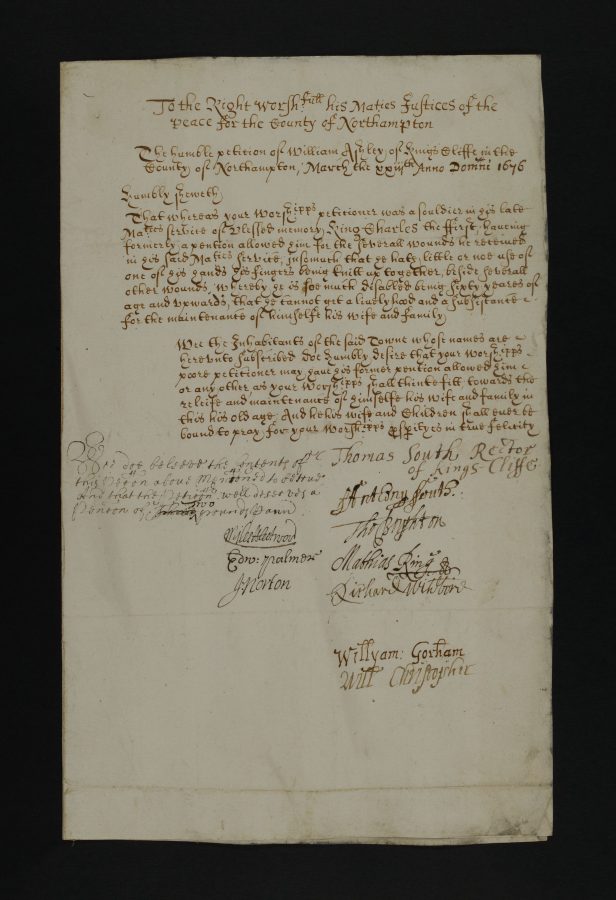 To the Right Worsh:full his Maties Justices of the
peace for the County of Northampton
The humble petition of William Ashley of Kings Cliffe in the
County of Northampton, March the xxijth Anno Domini 1676
Humbly sheweth
That whereas your Worshipps petitioner was a souldier in his late
Maties service of Blessed memory King Charles the ffirst, haveing
formerly a pention allowed him for the severall wounds he received
in his said Maties service, insomuch that he hath little or noe use of
one of his hands his fingers being knitt up together, beside severall
other wounds, whereby he is soe much disabled being sixty yeares of
age and upwards, that he cannot gett a livelyhood and a subsistance
for the maintenance of himselfe his wife and family
Wee the Inhabitants of the said Towne whose names are
hereunto subscribed doe humbly desire that your Worshipps
poore petitioner may have his former pention allowed him
or any other as your Worshipps shall thinke fitt towards the
releife and maintenance of himselfe his wife and family in
this his old age, And he his wife and Children shall ever be
bound to pray for your Worshipps prosperity in true felicity
Wee doe beleeve the Contents of
this Peticon above Mencioned to be true
And that the Peticonr well deserves a
Pencon of two pounds
Thomas South Rector
of Kings-Cliffe
Anthony South
Tho: Boughton
Mathias King
Richard
Edw: Palmer
J: Norton
Willyam: Gorham
Will Christopher